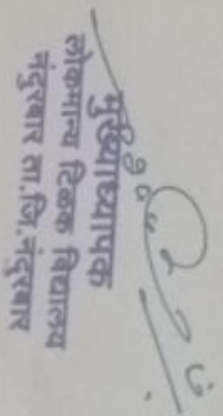 मुख्याध्यापक
लोकमान्य टिळक विद्यालय
नंदुरबार ता.जि.नंदुरबार